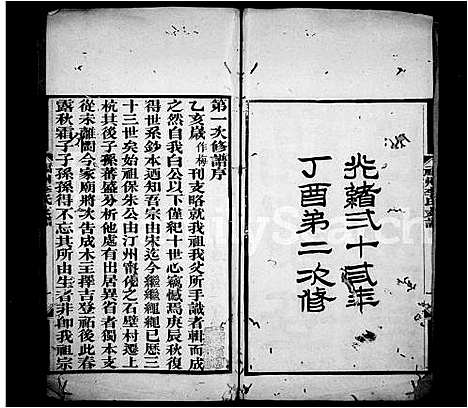 光緒弐十弎年
丁酉弟二次修
第一次修譜序
乙亥歲作梅刊支略就我祖我父所手識者輯而成
之然自我白公以下僅紀十世心竊憾焉庚辰秋復
得世系鈔本廼知吾宗由宋迄今繼繼繩繩已歷三
十三世矣始祖保朱公由汀州甯化之石壁村遷上
杭其後子孫蕃盛分析他處有出居異省者獨本支
從未離閩今家廟將次告成木主擇吉登祏後此春
露秋霜子子孫孫得不忘其所由生者非仰我祖宗